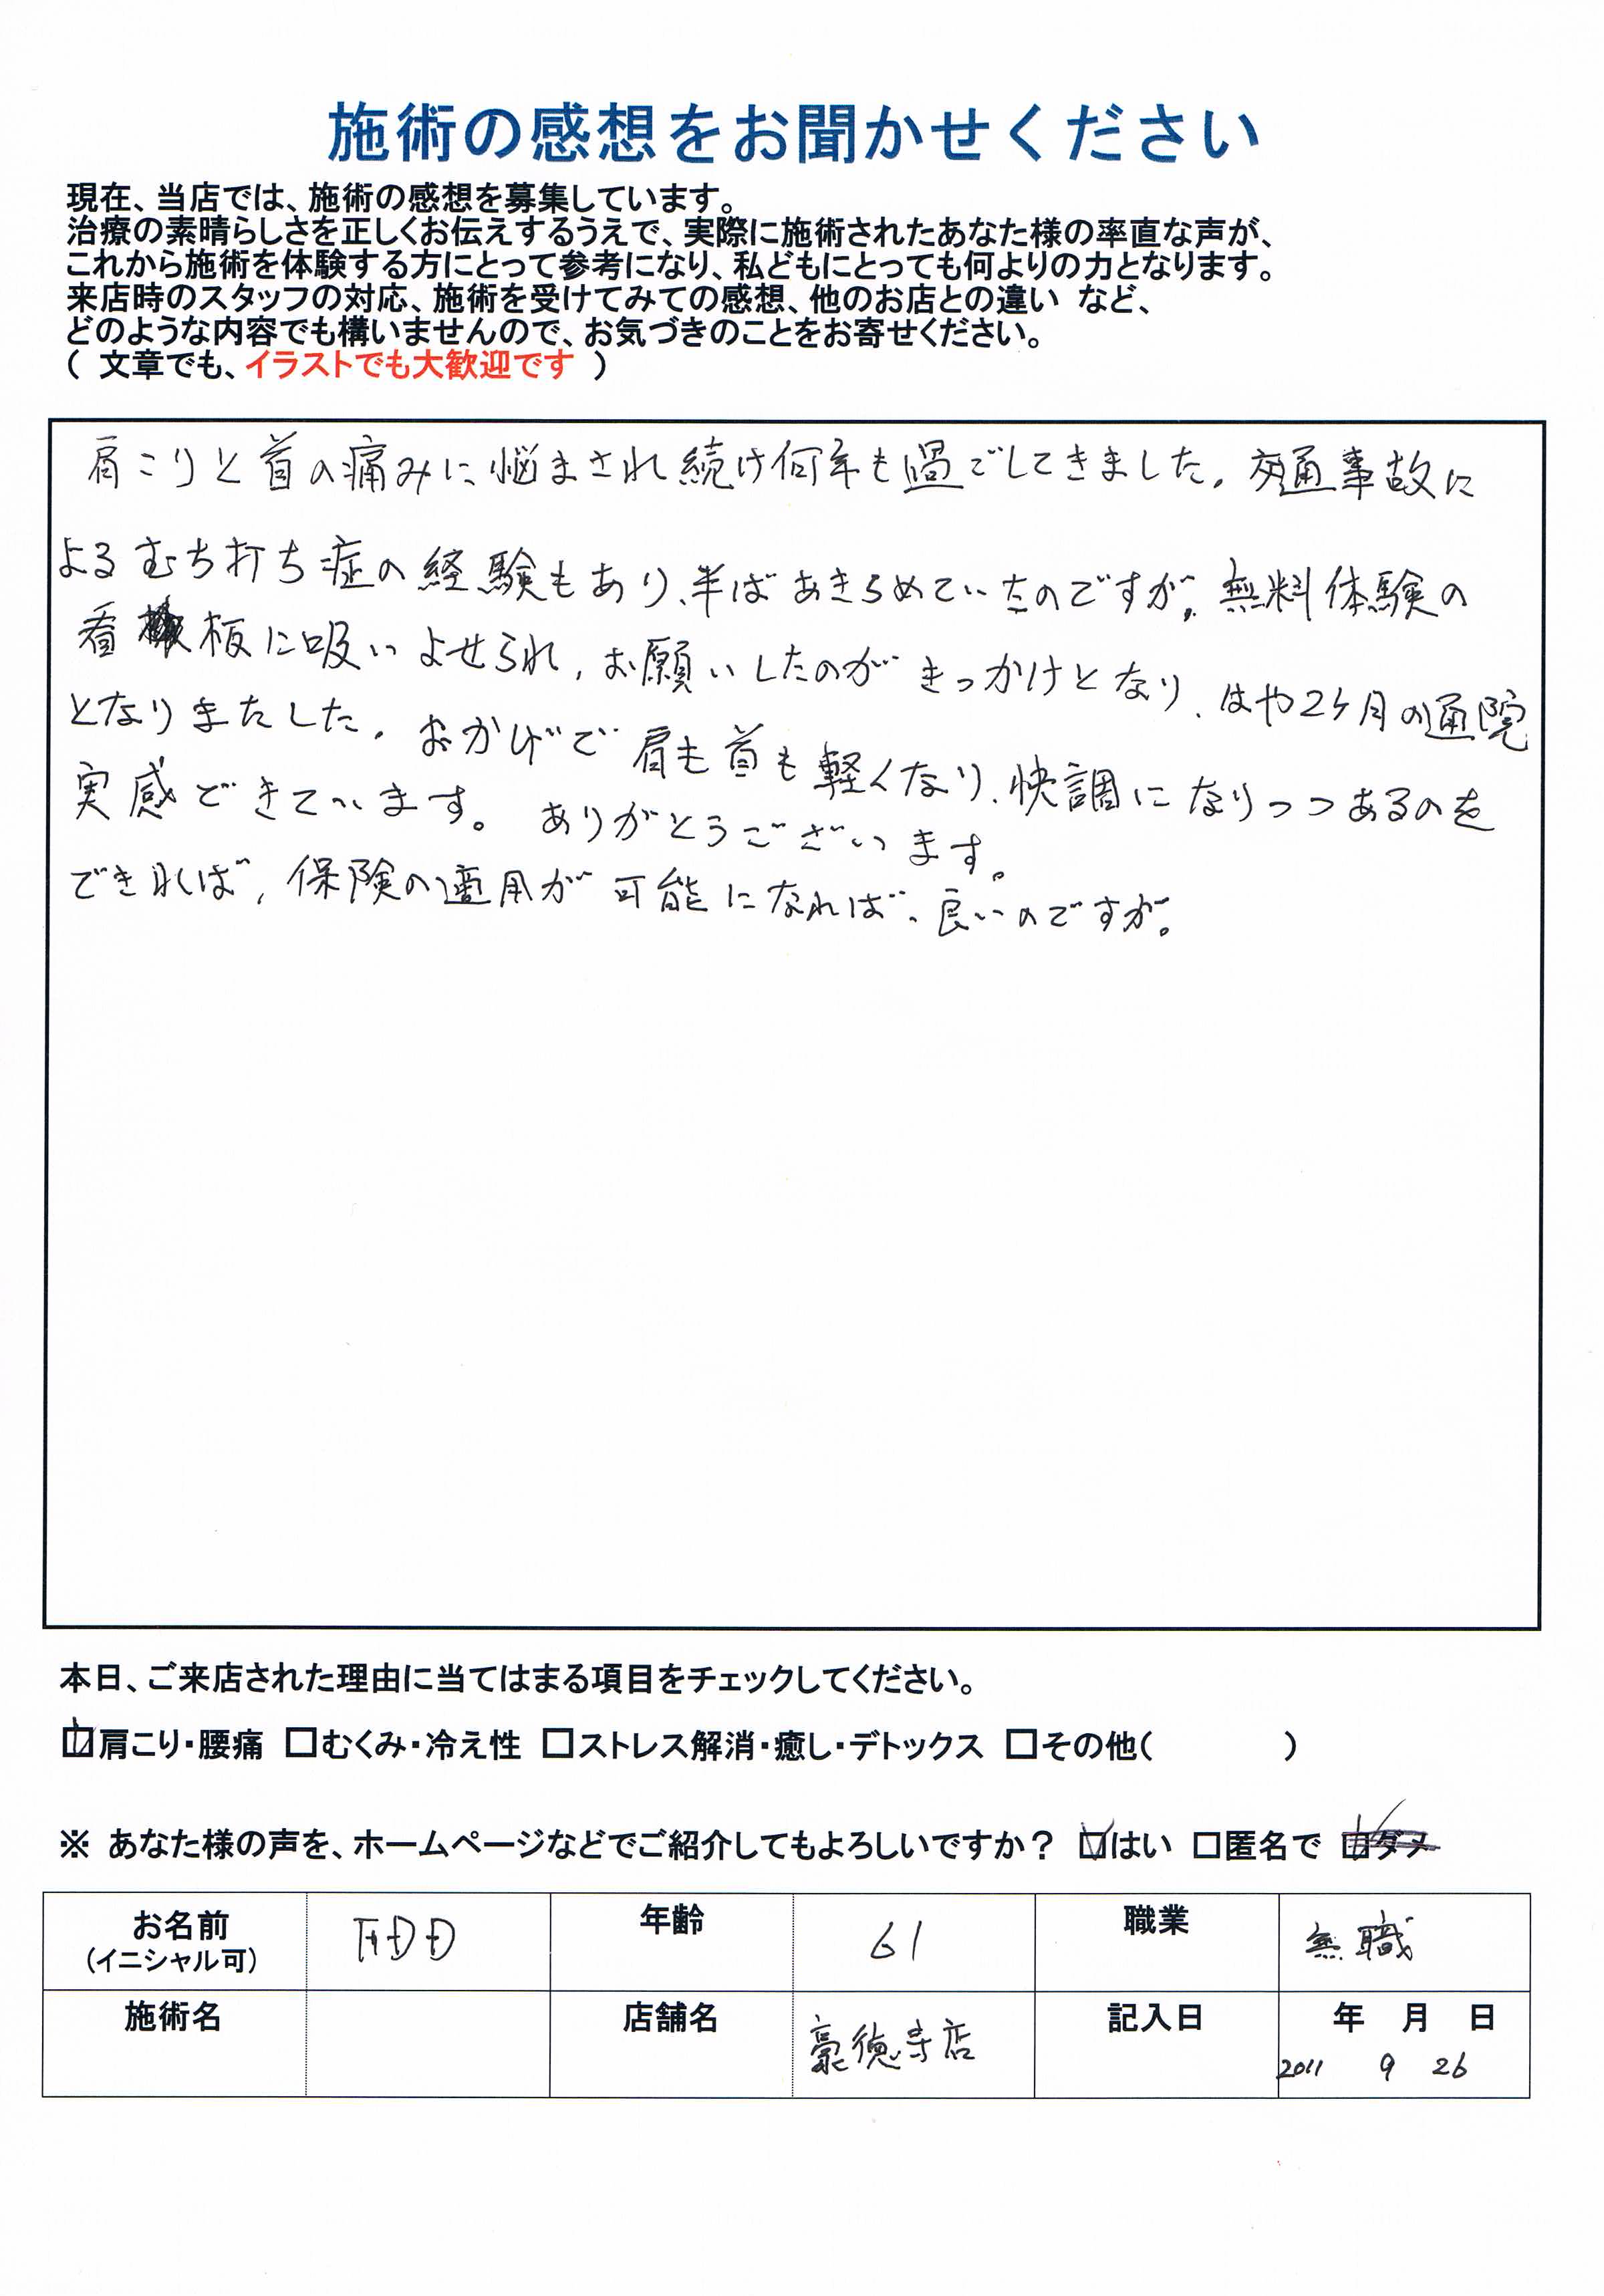 施術の感想をお聞かせください
現在、当店では、施術の感想を募集しています。
治療の素晴らしさを正しくお伝えするうえで、実際に施術されたあなた様の率直な声が、
これから施術を体験する方にとって参考になり、私どもにとっても何よりの力となります。
来店時のスタッフの対応、施術を受けてみての感想、他のお店との違い など、
どのような内容でも構いませんので、お気づきのことをお寄せください。
( 文章でも、イラストでも大歓迎です )
肩こりと首の痛みに悩まされ続け何年も過ごしてきました。交通事故に
よるむち打ち症の経験もあり、半ばあきらめていたのですが、無料体験の
看板に吸いよせられ、お願いしたのがきっかけとなり、はや2ケ月の通院
となりまたした。おかげで肩も首も軽くなり、快調になりつつあるのを
実感できています。ありがとうございます。
できれば、保険の適用が可能になれば、良いのですが。
本日、ご来店された理由に当てはまる項目をチェックしてください。
☑肩こり・腰痛 □むくみ・冷え性 □ストレス解消・癒し・デトックス □その他( )
※ あなた様の声を、ホームページなどでご紹介してもよろしいですか? ☑はい □匿名で ☑ダメ
お名前 年齢 61 職業 無職
(イニシャル可)
施術名 店舗名 豪徳寺店 記入日 年 月 日
2011 9 26